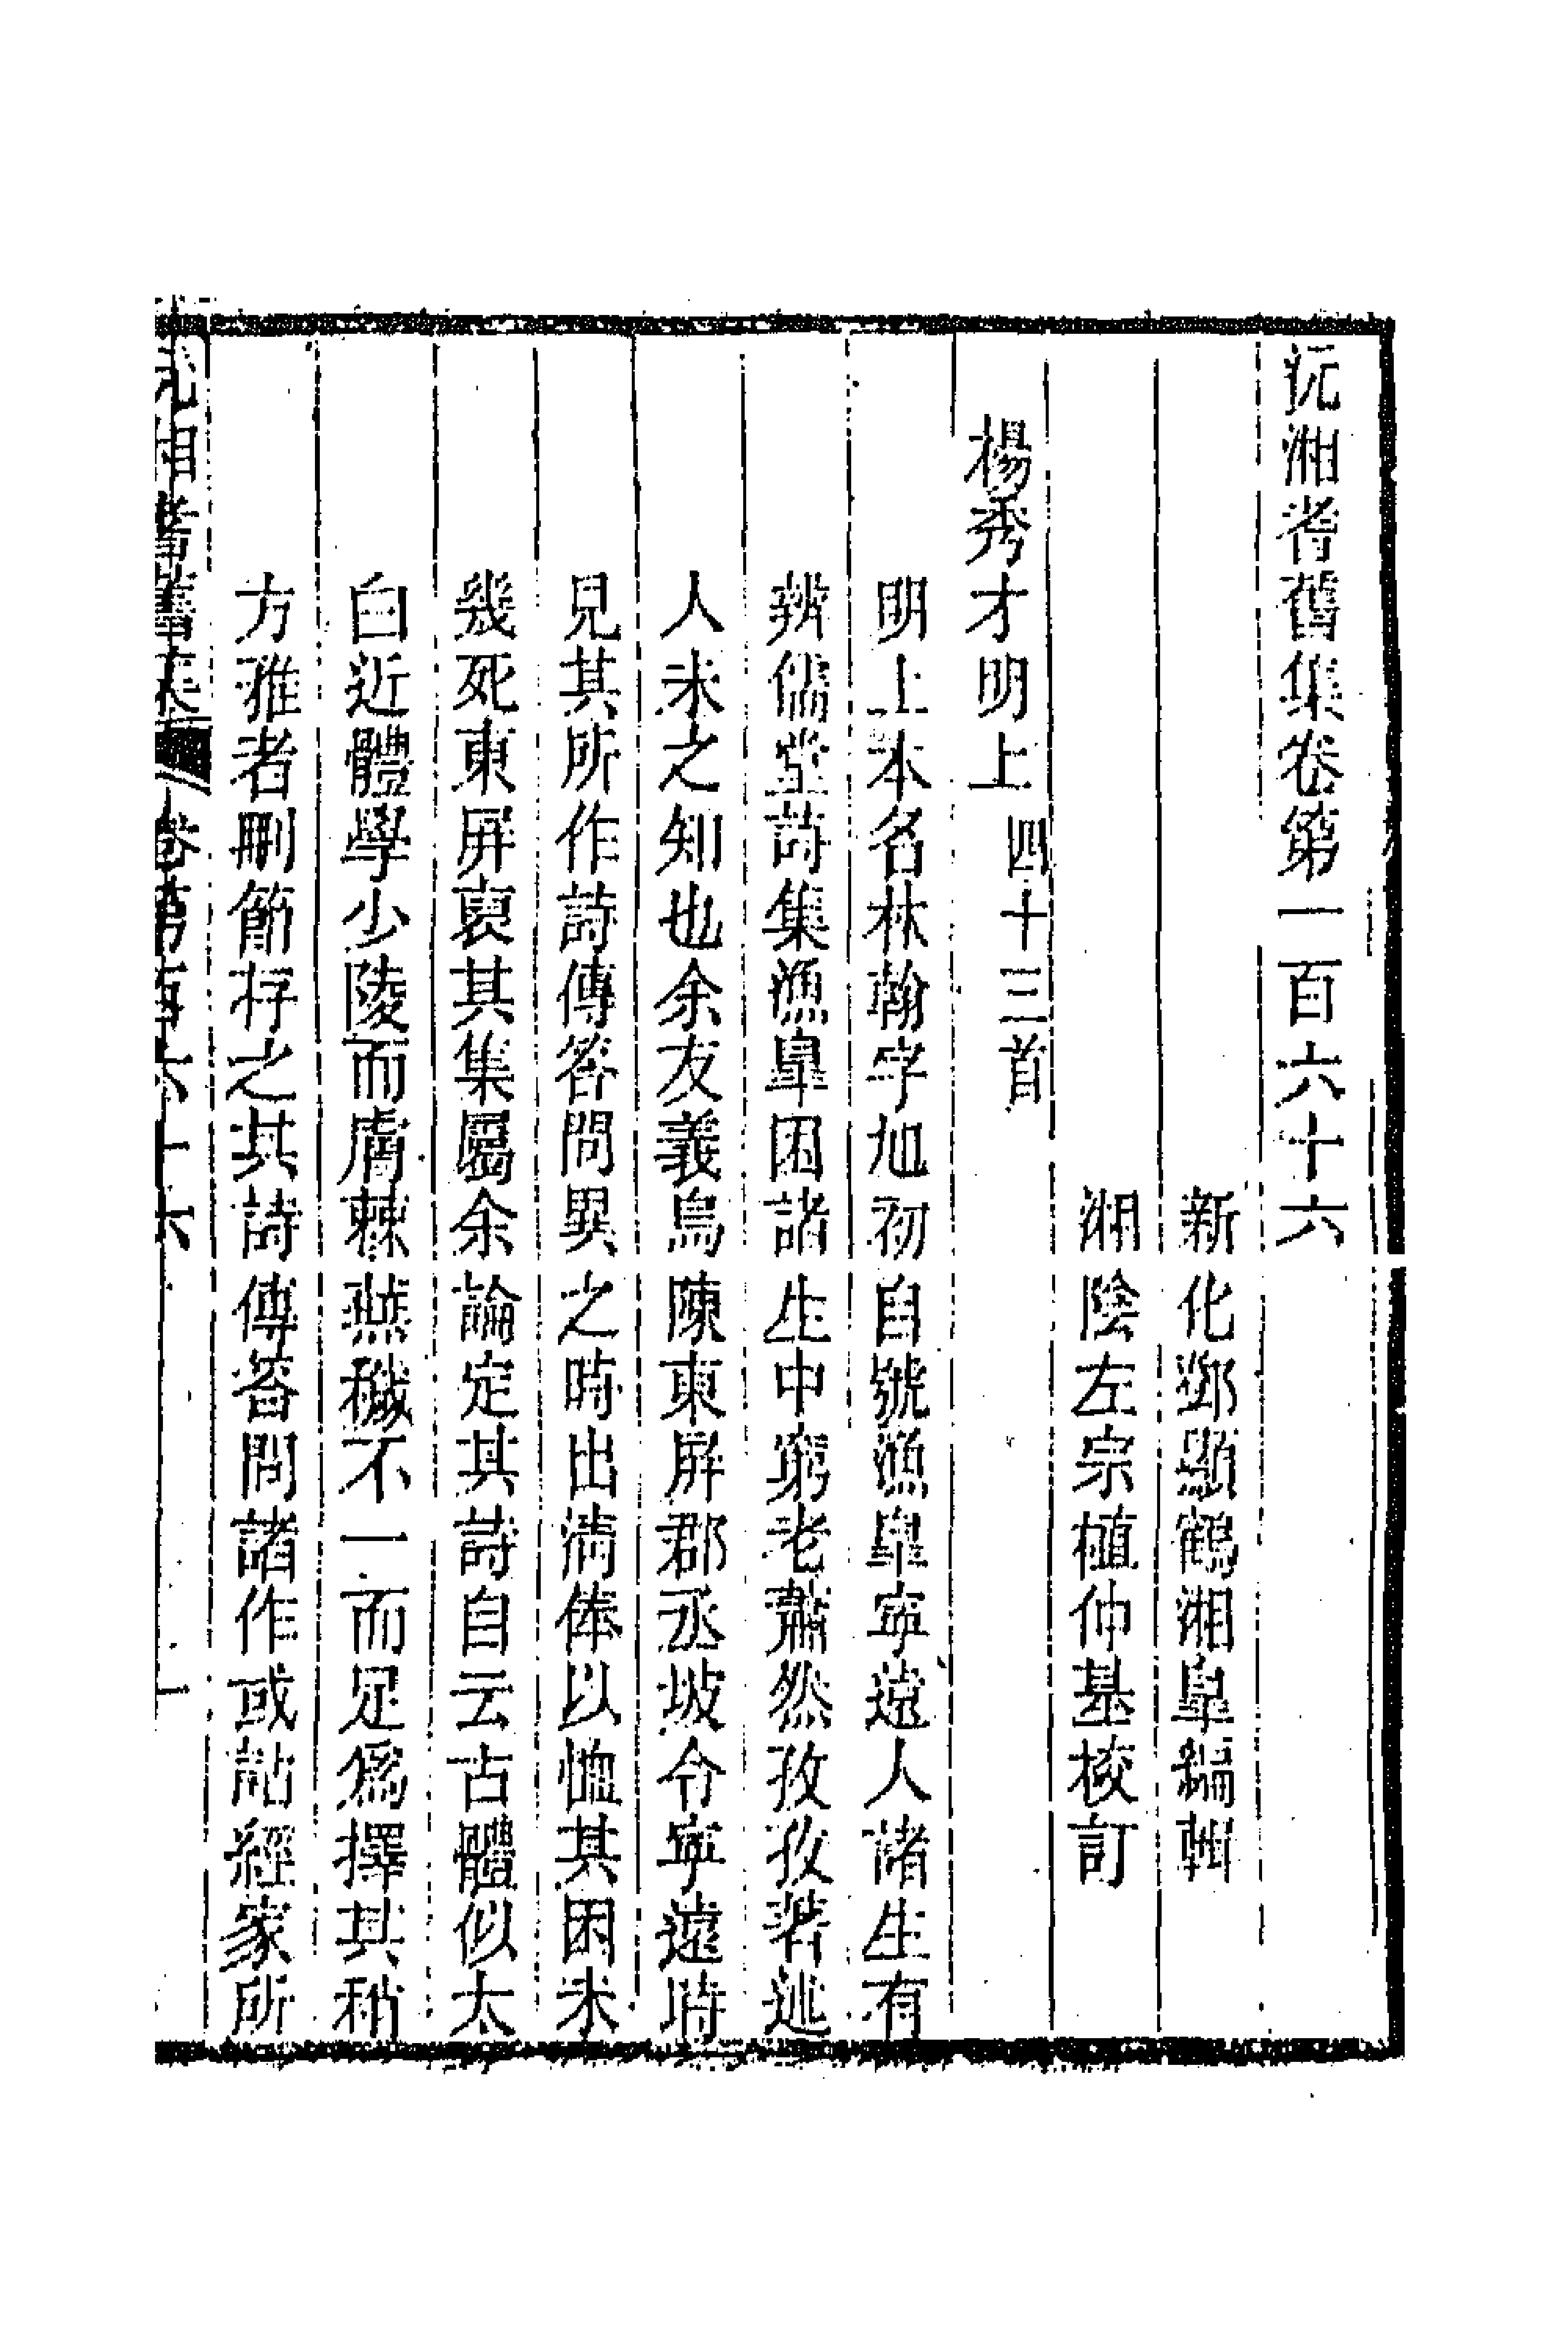 沅湘耆舊集卷第一百六十六
新化鄧顯鶴湘皋編輯
湘陰左宗植仲基校訂
楊秀才明上四十三首
明上本名林翰字旭初自號漁皐寧遠人諸生有
辨儒堂詩集漁皐困諸生中窮老蕭然孜孜著述
人未之知也余友義烏陳東屏郡丞坡令寧遠時
見其所作詩傳答問異之時出清俸以恤其困未
幾死東屏裒其集屬余論定其詩自云古體似太
白近體學少陵而膚棘燕穢不一而足爲擇其稍
方雅者刪節存之其詩傳荅問諸作或詁經家所
沅湘耆舊集 卷第百六十六 一